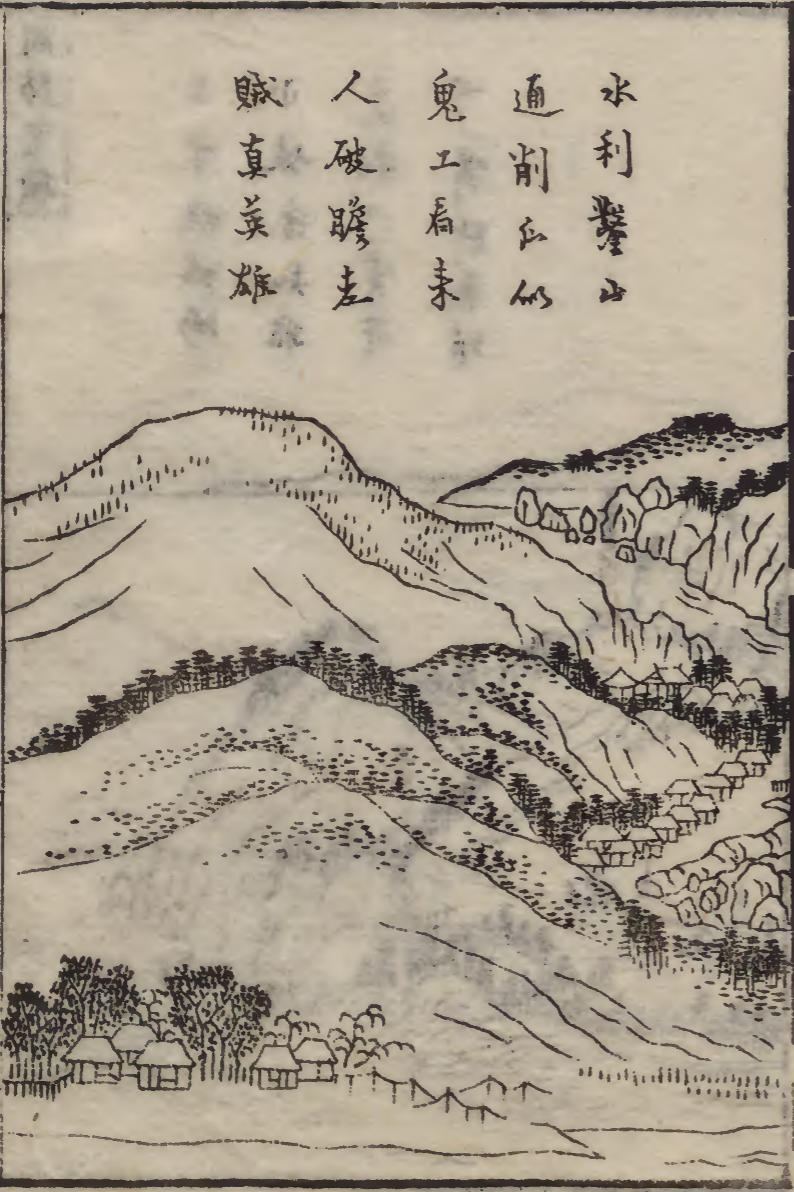 水利鑿山
通削似
鬼工看来
人破膽走
賊真英雄